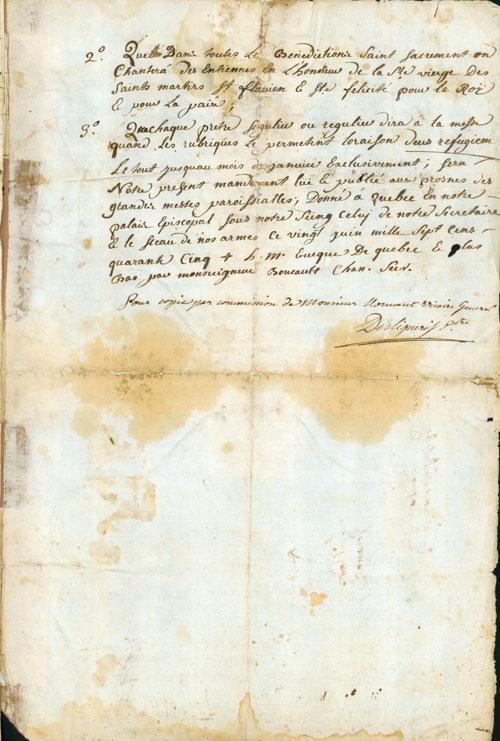 2.° Quelle Dans toutes Le Benedictions Saint sacrement on
Chantera des Entiennes En Lhonneur de la Ste vierge Des
Saints martirs St flavien & Ste felicité pour le Roÿ
& pour la paix;
3.° Quachaque pretre seculier ou regulier dira à la messe
quand Les rubriques Le permettent loraison deus refugium
Le tout jusquau mois de janvier Exclusivement; sera
Notre present mandement lû & publié aux prosnes des
grandes messes paroissialles; Donné à Quebec En notre
palais Episcopal sous notre Seing Celuy de notre Secretaire
& le sceau de nos armes Ce vingt juin mille Sept Cens
quarant Cinq + h. m. Eveque De quebec & plus
bas, par monseigneur Boucault Chan. Secr.
Pour copie par commission de Monsieur Normant vicaire General
Desligneris Ptre